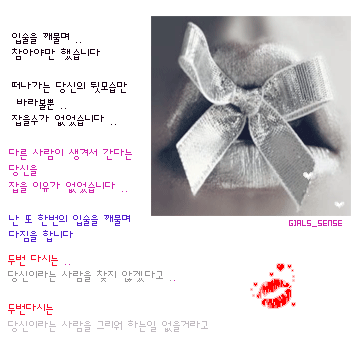 입술을 깨물며 ..
참아야만 했습니다
떠나가는 당신의 뒷모습만
바라볼뿐 ..
잡을수가 없었습니다 ..
다른 사람이 생겨서 간다는
당신을
잡을 이유가 없었습니다 ..
난 또 한번의 입술을 깨물며
다짐을 합니다
두번 다시는 ..
당신이라는 사람을 찾지 않겠다고 ..
두번다시는
당신이라는 사람을 그리워 하는일 없을거라고
GIRLS_SENSE